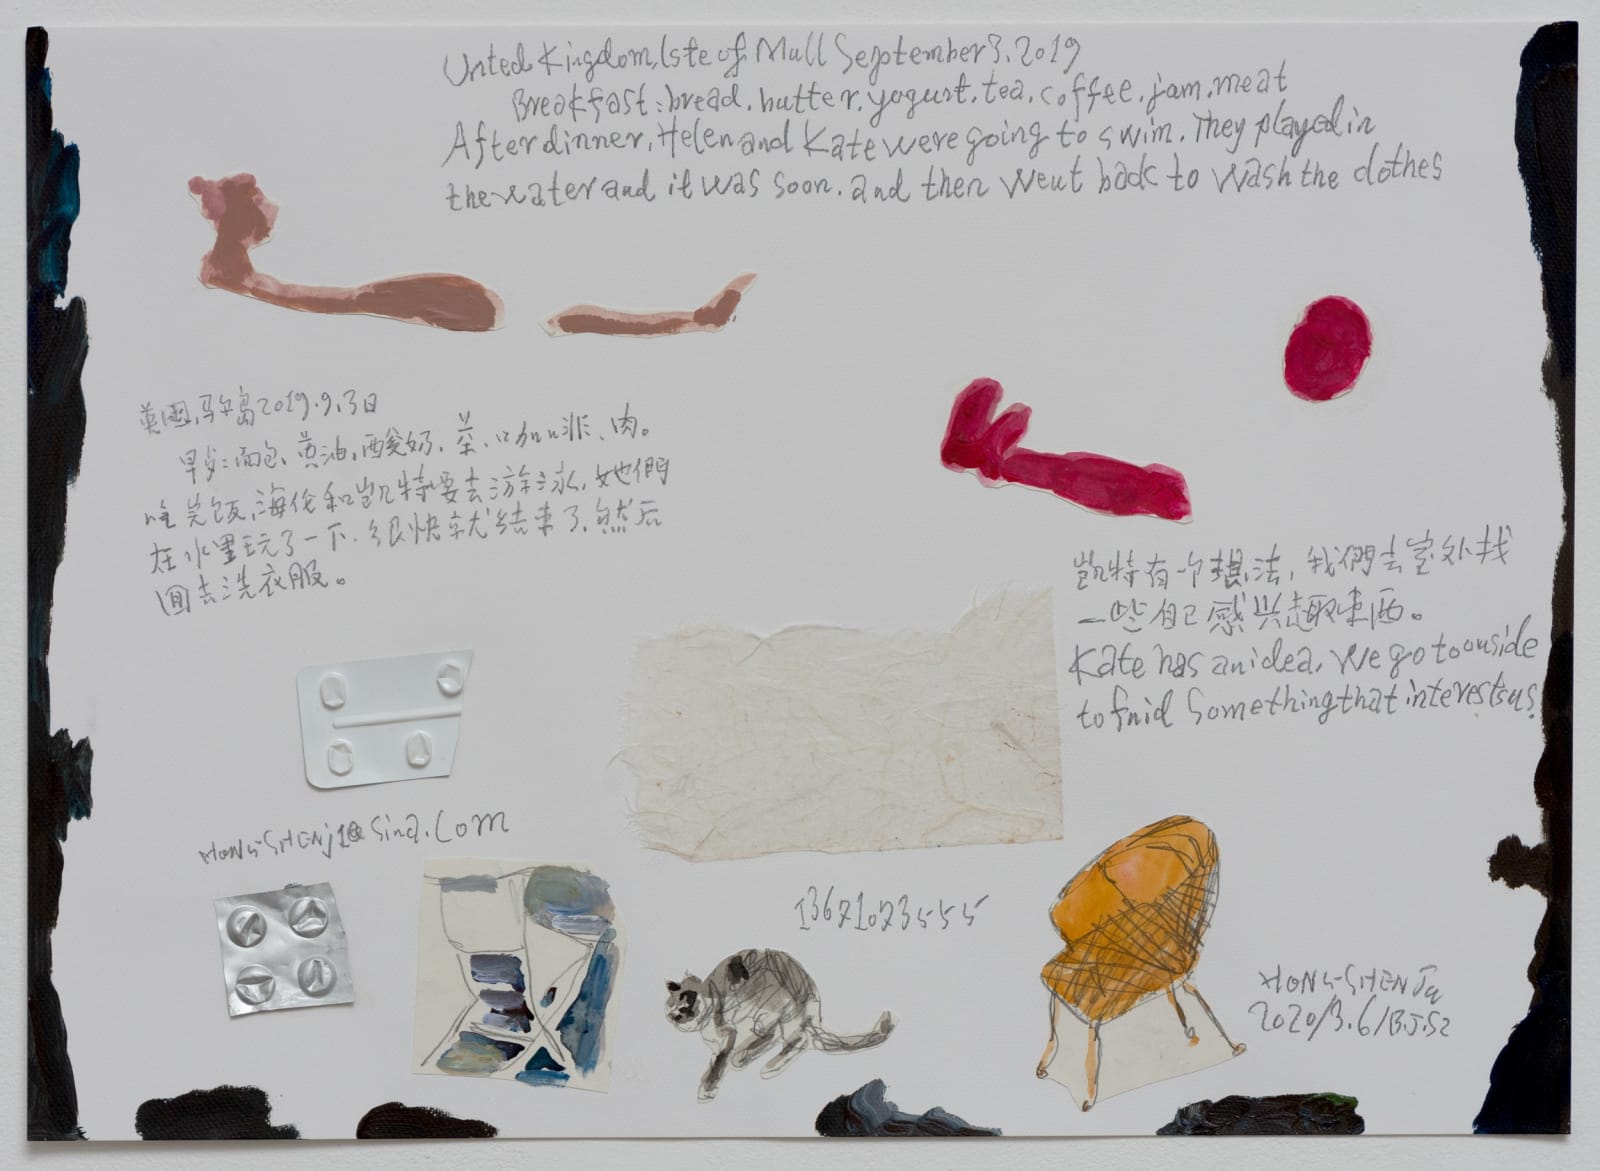 Unted Kingdom, Iste of Mull September 3. 2019
Breakfast: bread. butter. yogurt. tea. coffee. jam. meat
After dinner, Helen and Kate were going to swim. They played in
the water and it was soon. and then went back to wash the clothes
英國,马尔島2019.9.3日
早歺:面包、黄油、酸奶、茶、咖啡、肉。
吃完饭,海伦和凯特要去游泳,她們
在水里玩了一下.很快就结束了.然后
回去洗衣服。
凯特有个想法,我們去室外找
一些自己感兴趣東西。
Kate has an idea. We go to ouside
to fnid Something that interests us.
HONGSHENj1@sina.com
13671073555
HONGSHEN Ju
2020/3.6/B.J.S2